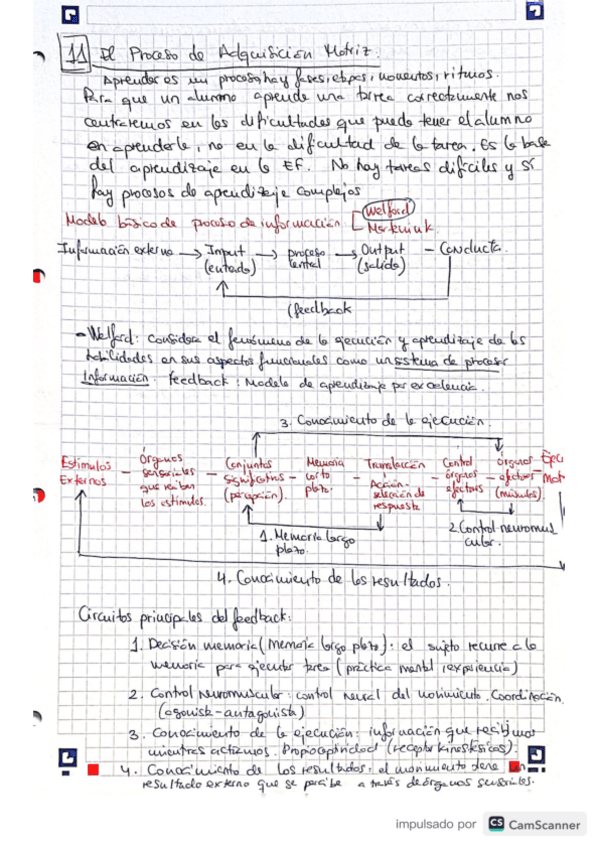 11 El Proceso de Adquisición Motriz.
Aprender es un proceso, hay fases, etapas, momentos, ritmos.
Para que un alumno aprenda una tarea correctamente nos
centraremos en las dificultades que puede tener el alumno
en aprenderla, no en la dificultad de la tarea. Es la base
del aprendizaje en la EF. No hay tareas difíciles y sí
hay procesos de aprendizaje complejos
Modelo básico de proceso de información [ Welford
Información externa → Input (entrada) → proceso central → Output (salida) – Conducta.
(feedback
- Welford: considera el fenómeno de la ejecución y aprendizaje de las
habilidades en sus aspectos funcionales como un sistema de procesar
Información. feedback: Modelo de aprendizaje por excelencia.
3. Conocimiento de la ejecución.
Estímulos Externos – Órganos sensoriales que reciben los estímulos. – Conjuntos significativos (percepción) – Memoria corto plazo. – Translación Acción - selección de respuesta – Control órganos efectores – Órganos efectores (músculos) – Ejecu Mot
1. Memoria largo plazo.
2. Control neuromuscular.
4. Conocimiento de los resultados.
Circuitos principales del feedback:
1. Decisión memoria (Memoria largo plazo): el sujeto recurre a la
memoria para ejecutar tarea (práctica mental, experiencia)
2. Control Neuromuscular: control neural del movimiento. Coordinación.
(agonista-antagonista)
3. Conocimiento de la ejecución: información que recibimos
mientras actuamos. Propioceptividad (receptor kinestésicos).
4. Conocimiento de los resultados: el movimiento tiene un
resultado externo que se percibe a través de órganos sensoriales.
impulsado por CS CamScanner